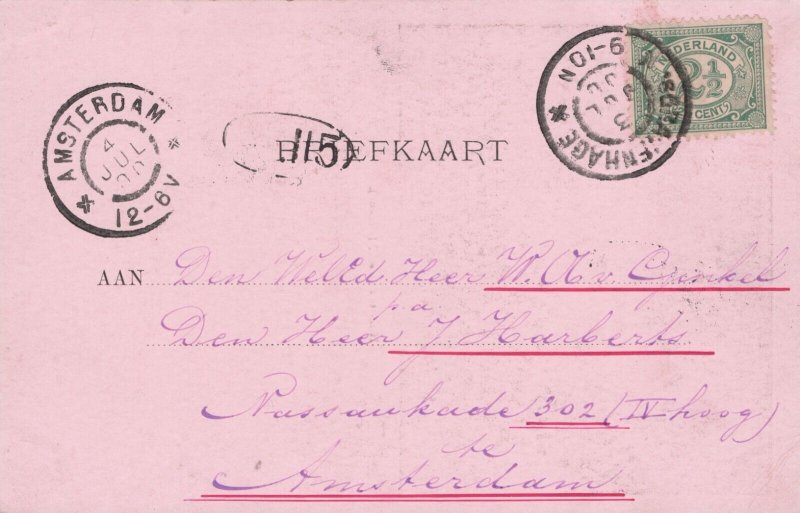 NEDERLAND
2½
CENT
'S GRAVENHAGE
9-10N
AMSTERDAM
4 JUL 00
12-6V
115
BRIEFKAART
AAN Den WelEd Heer W. A. v Genkel
p/a
Den Heer J Harberts
Nassaukade 302 (IV hoog)
te
Amsterdam